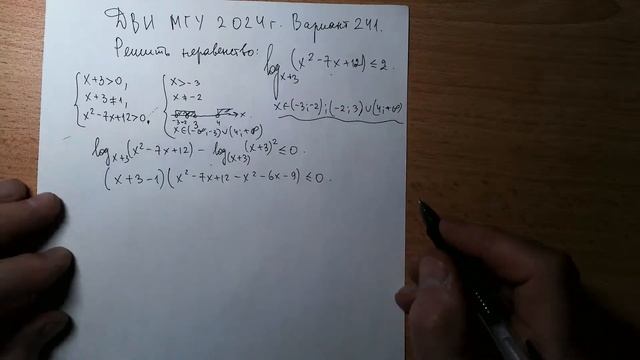 ДВИ МГУ 2024г. Вариант 241.
Решить неравенство: log_{x+3}(x²-7x+12) ≤ 2.
{ x+3>0, x+3≠1, x²-7x+12>0,
{ x>-3 x≠-2
-3 -2 3 4 x
x∈(-∞;-3)∪(4;+∞)
x∈(-3;-2);(-2;3)∪(4;+∞)
log_{x+3}(x²-7x+12) - log_{(x+3)}(x+3)² ≤ 0.
(x+3-1)(x²-7x+12-x²-6x-9) ≤ 0.